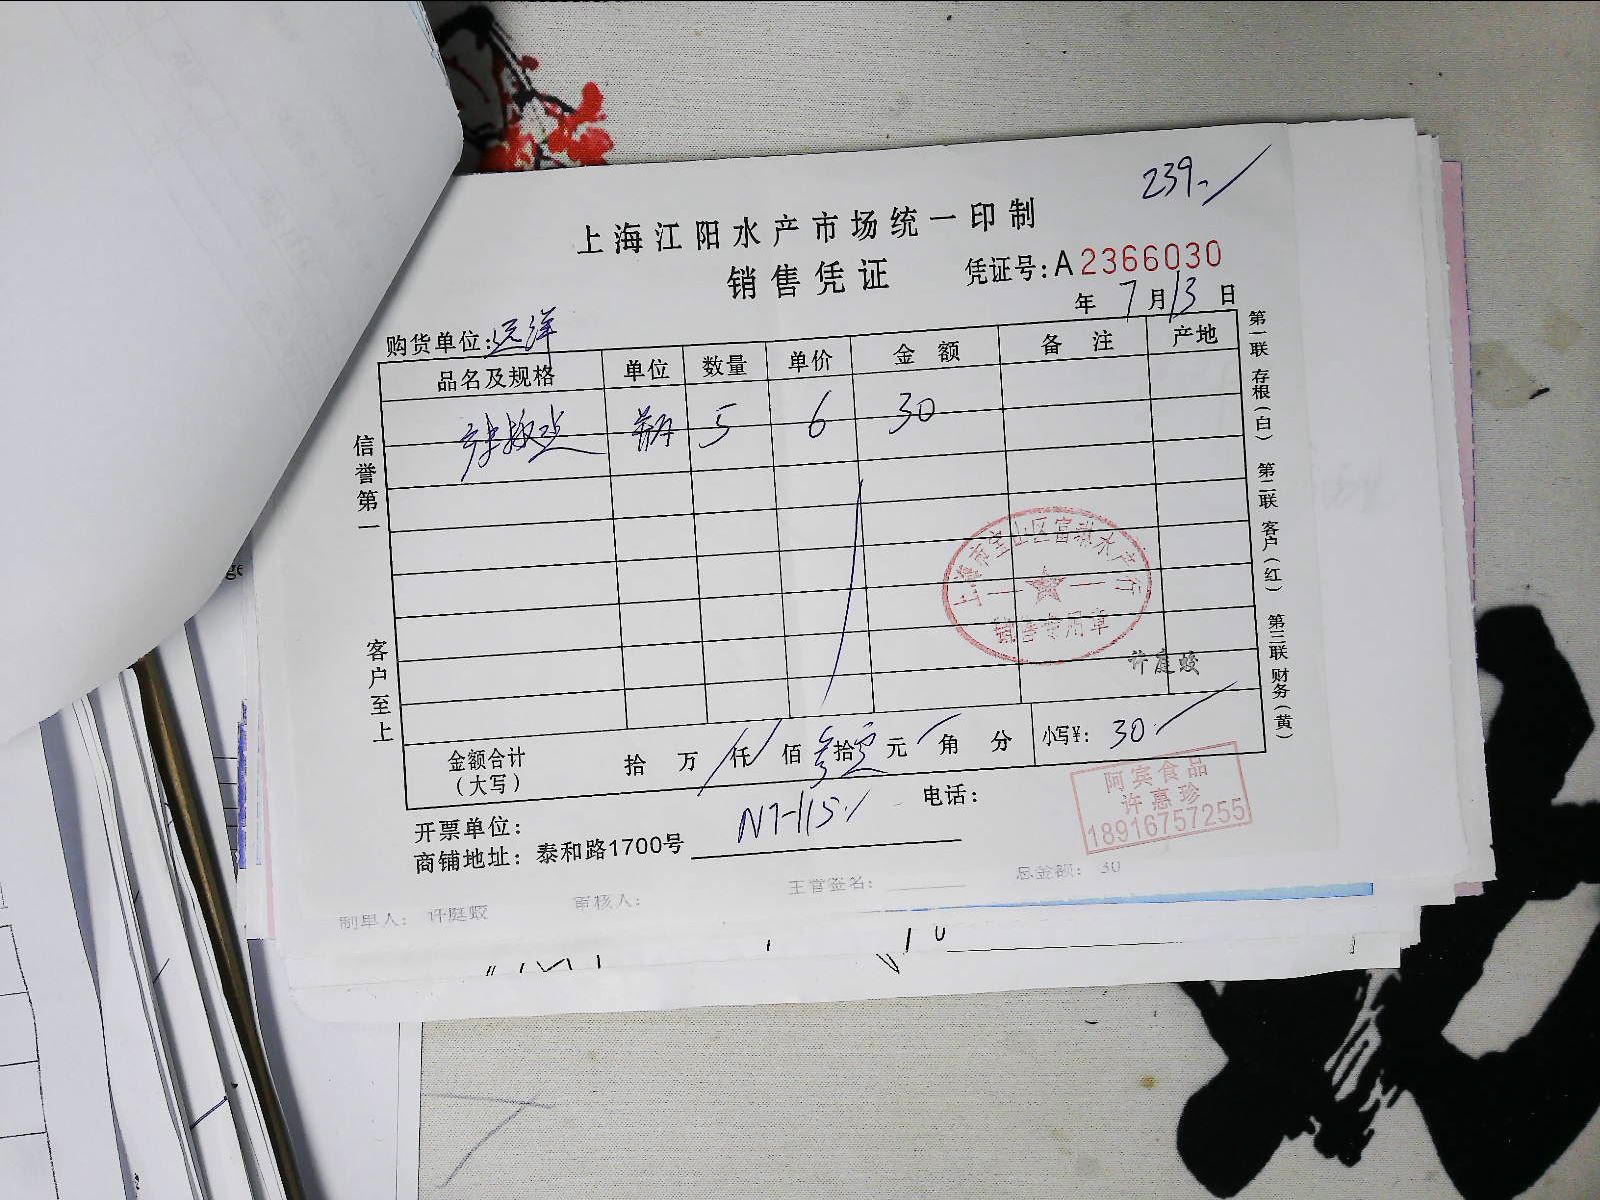 239.-
上海江阳水产市场统一印制
销售凭证
凭证号:A2366030
年 7 月 13 日
购货单位:远洋
品名及规格 单位 数量 单价 金额 备注 产地
5 6 30
信誉第一
客户至上
第一联 存根(白) 第二联 客户(红) 第三联 财务(黄)
上海市宝山区富林水产行
销售专用章
许庭蛟
金额合计(大写) 拾 万 仟 佰 叁 拾 零 元 角 分 小写¥: 30.
开票单位:
电话:
商铺地址:泰和路1700号
N7-115
阿宾食品
许惠珍
18916757255
制单人: 许庭蛟 审核人: 主管签名: 总金额: 30
ge